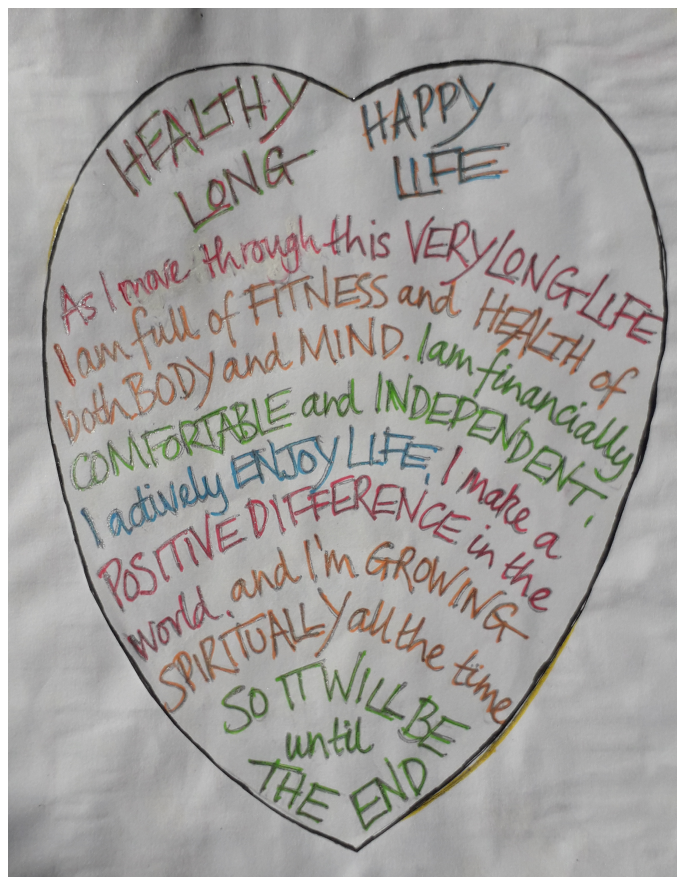 HEALTHY HAPPY
LONG LIFE
As I move through this VERY LONG LIFE
I am full of FITNESS and HEALTH of
both BODY and MIND. I am financially
COMFORTABLE and INDEPENDENT.
I actively ENJOY LIFE, I make a
POSITIVE DIFFERENCE in the
world. and I'm GROWING
SPIRITUALLY all the time
SO IT WILL BE
until
THE END